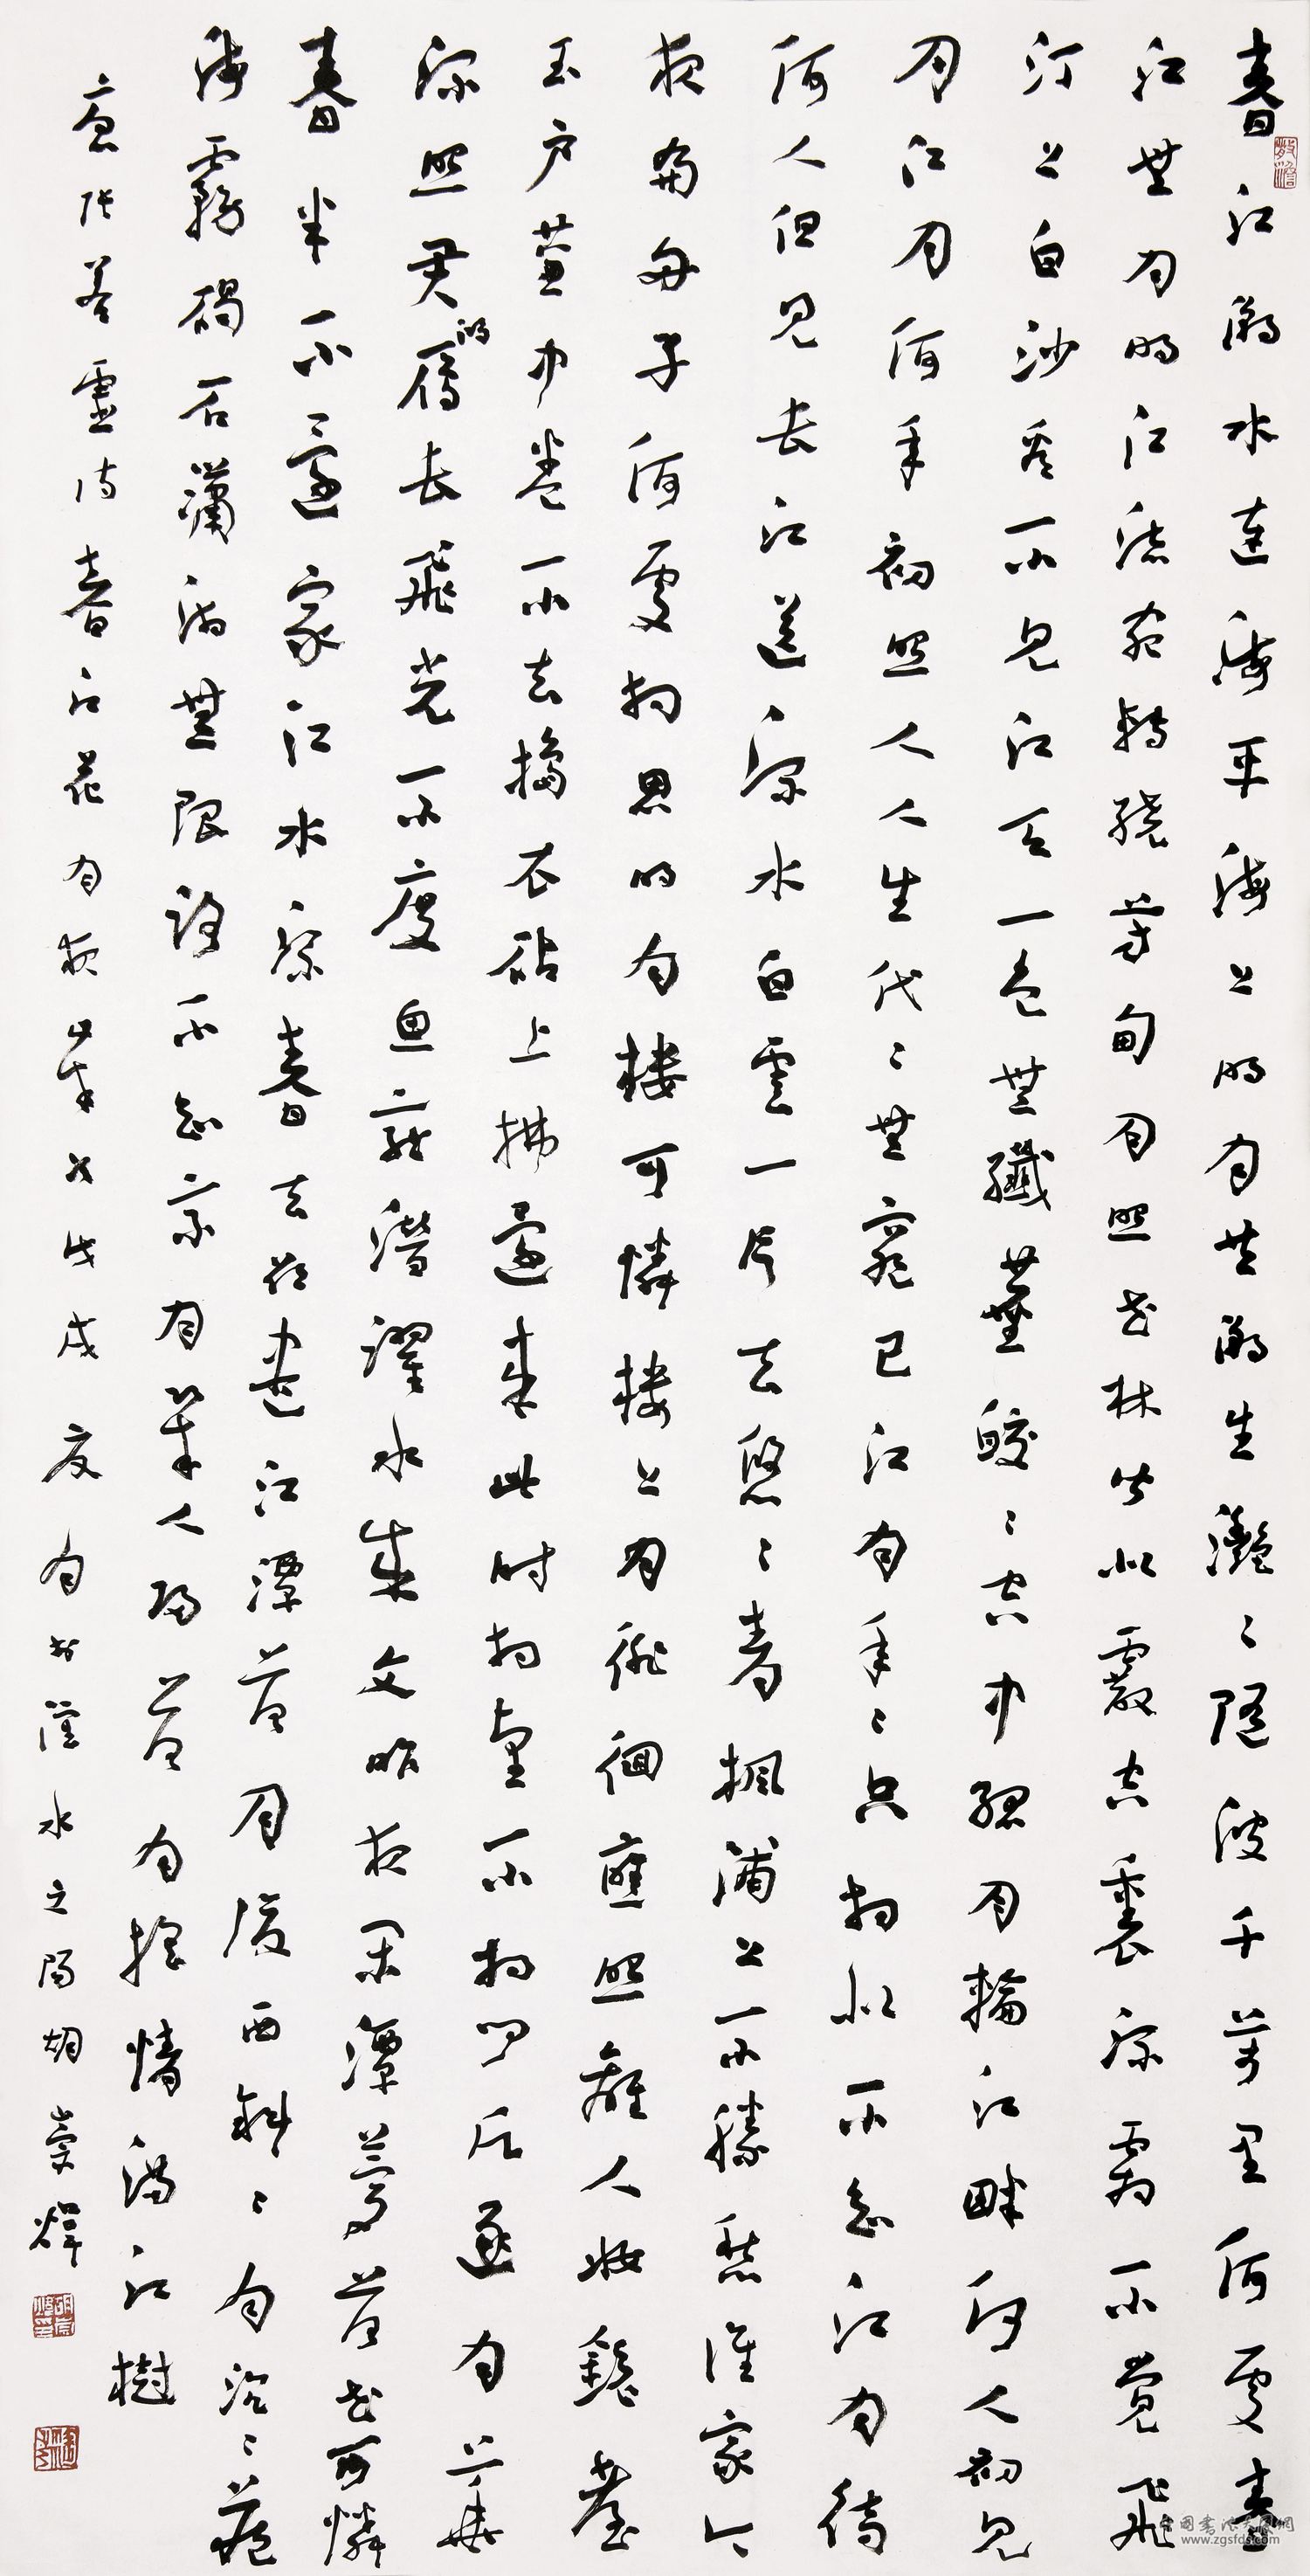 春江潮水連海平海上明月共潮生灩〻隨波千萬里何處春
江無月明江流宛轉繞芳甸月照花林皆似霰空裏流霜不覺飛
汀上白沙看不見江天一色無纖塵皎〻空中孤月輪江畔何人初見
月江月何年初照人人生代〻無窮已江月年〻只相似不知江月待
何人但見長江送流水白雲一片去悠〻青楓浦上不勝愁誰家今
夜扁舟子何處相思明月樓可憐樓上月徘徊應照離人妝鏡臺
玉戶簾中卷不去擣衣砧上拂還來此時相望不相聞願逐月華
流照君鴻雁長飛光不度魚龍潛躍水成文昨夜閑潭夢落花可憐
春半不還家江水流春去欲盡江潭落月復西斜〻月沉〻藏
海霧碣石瀟湘無限路不知乘月幾人歸落月搖情滿江樹
唐張若虛詩春江花月夜歲次戊戌夏月於漢水之陽胡崇煒
www.zgsfds.com